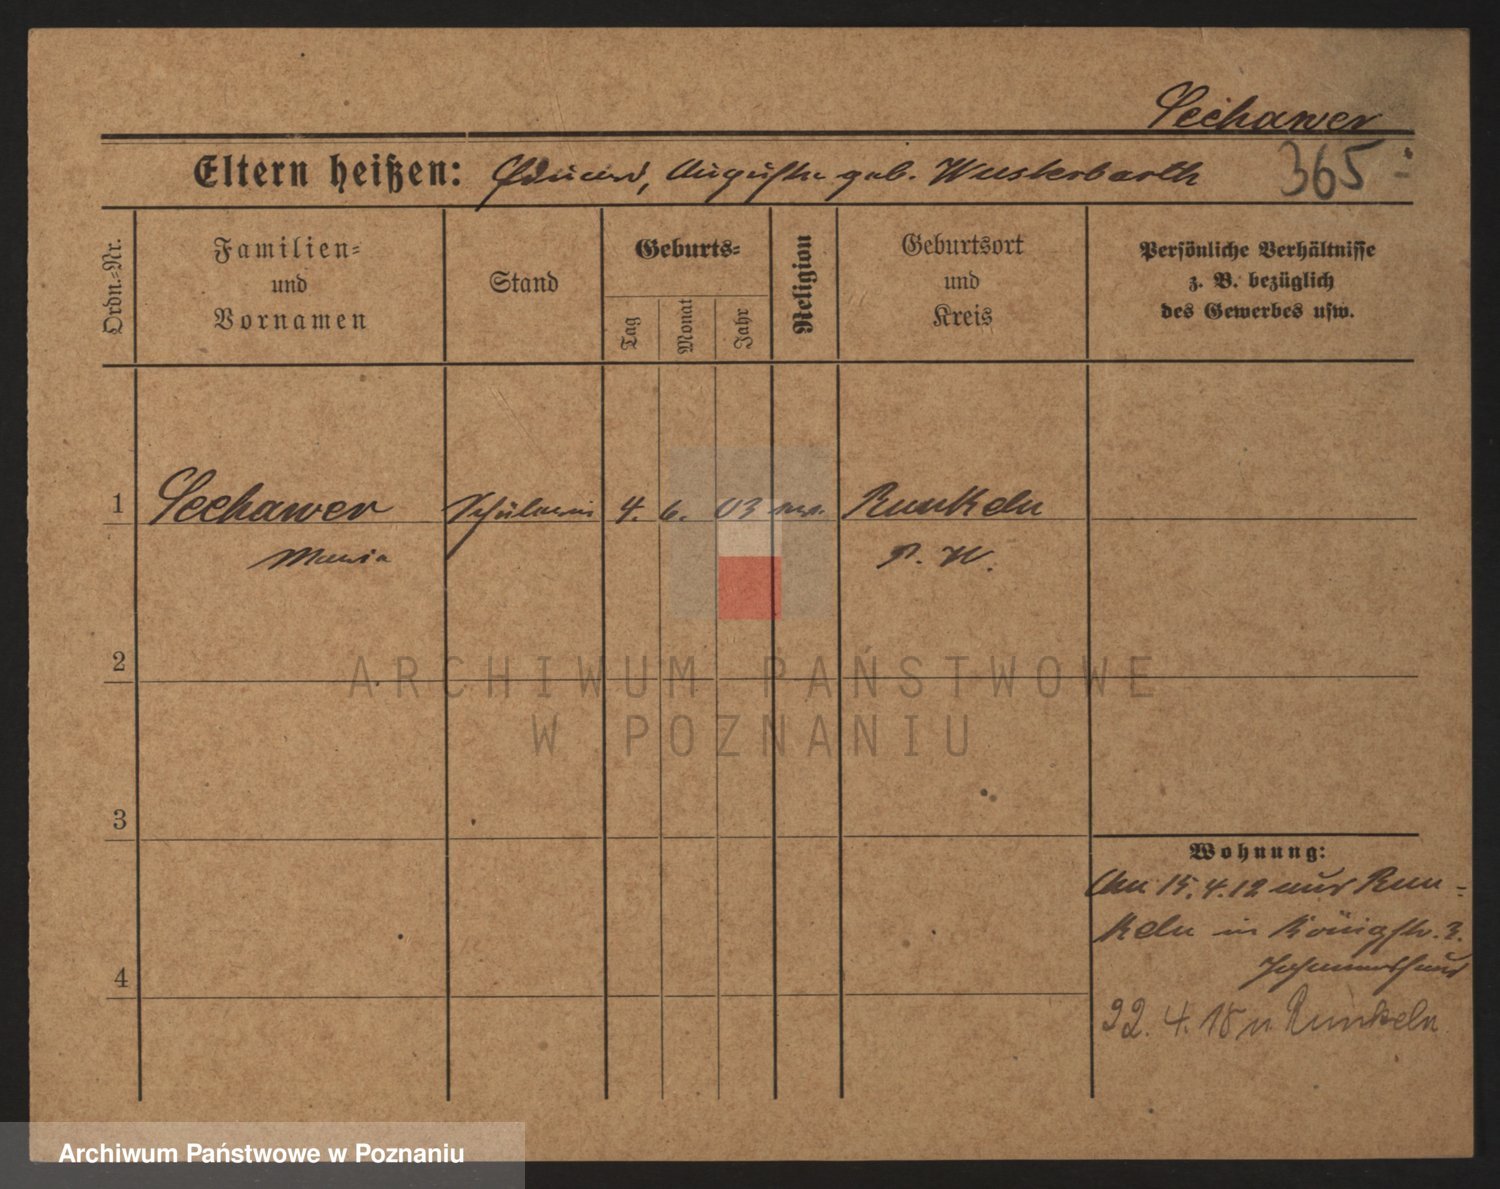 Sechawer
Eltern heißen: Eduard, Auguste geb. Wusterbarth
365
Ordn.=Nr.
Familien=
und
Vornamen
Stand
Geburts=
Tag
Monat
Jahr
Religion
Geburtsort
und
Kreis
Persönliche Verhältnisse
z. B. bezüglich
des Gewerbes usw.
1 Sechawer Schülerin 4. 6. 03 Runkeln
Maria P. W.
2
3
4
Wohnung:
Am 15.4.12 aus Run=
keln in Königstr. 3.
22. 4. 18 n. Runkeln
ARCHIWUM PAŃSTWOWE
W POZNANIU
Archiwum Państwowe w Poznaniu